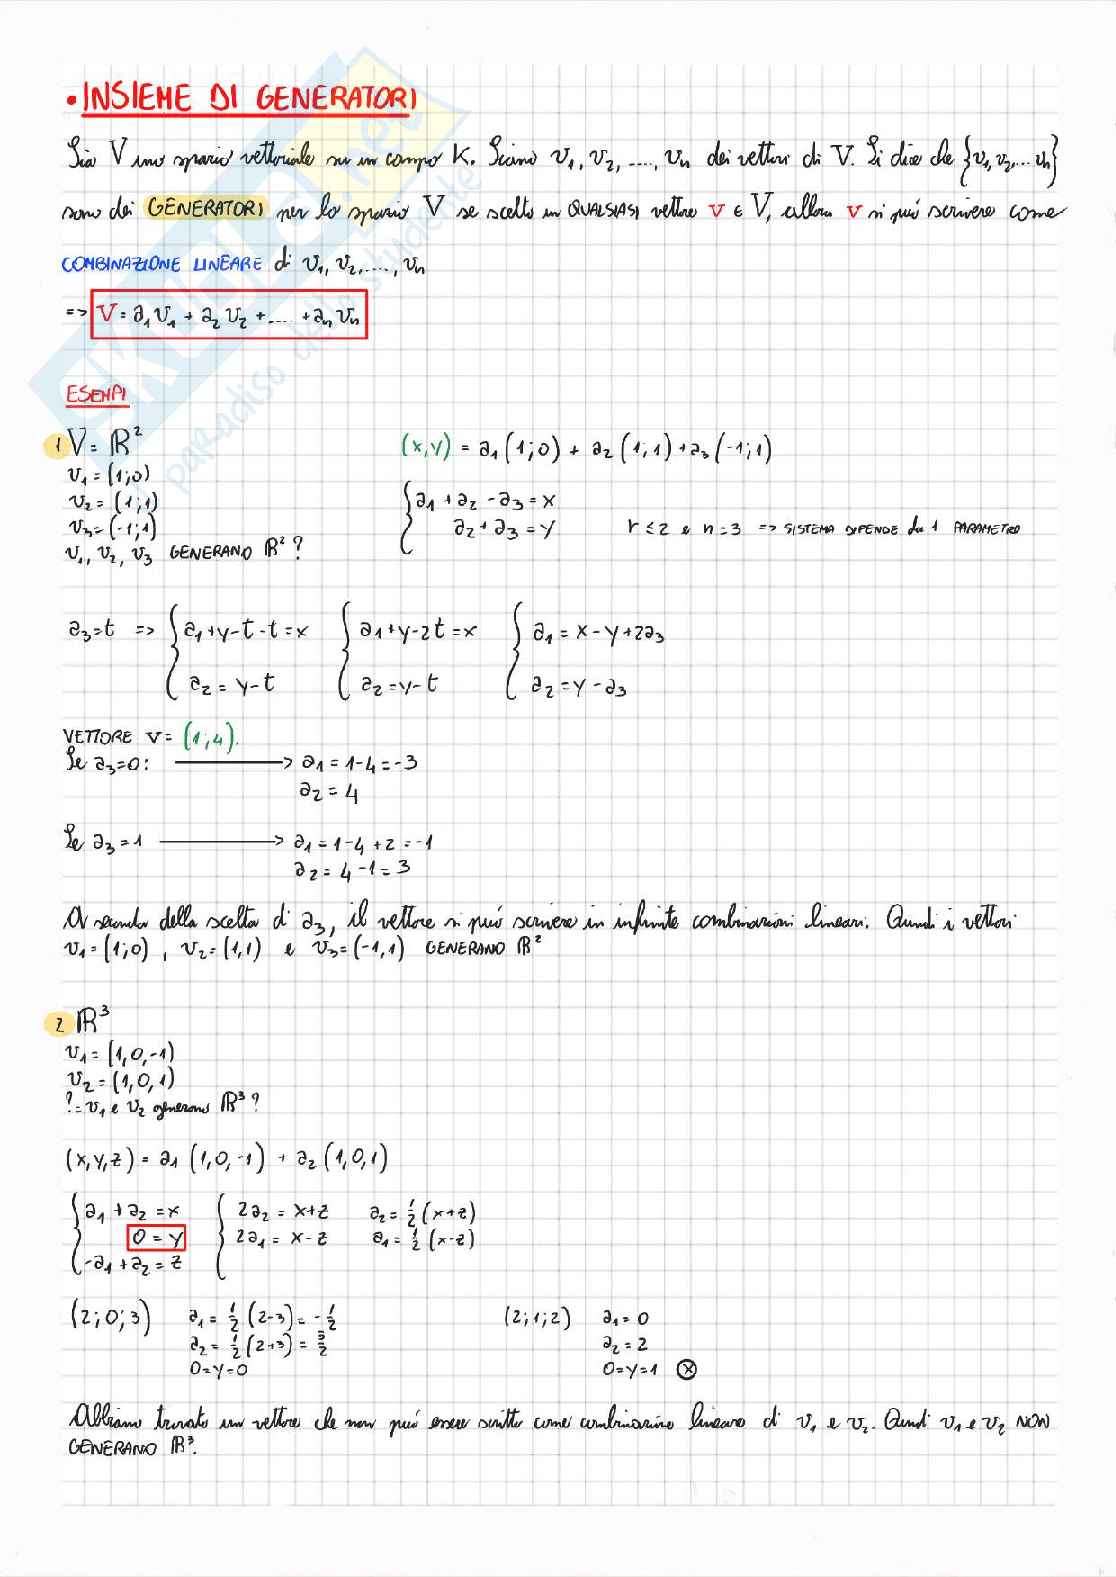 • INSIEME DI GENERATORI
Sia V uno spazio vettoriale su un campo K. Siano v₁, v₂, ...., vₙ dei vettori di V. Si dice che {v₁,v₂,... vₙ}
sono dei GENERATORI per lo spazio V se scelto un QUALSIASI vettore v ∈ V, allora v si può scrivere come
COMBINAZIONE LINEARE di v₁, v₂,...., vₙ
=> V = a₁v₁ + a₂v₂ + .... + aₙvₙ
ESEMPI
1 V = ℝ²
(x,y) = a₁(1;0) + a₂(1;1) + a₃(-1;1)
v₁ = (1;0)
v₂ = (1;1)
v₃ = (-1;1)
v₁, v₂, v₃ GENERANO ℝ²?
{ a₁ + a₂ - a₃ = x
a₂ + a₃ = y r ≤ 2 e n = 3 => SISTEMA DIPENDE da 1 PARAMETRO
a₃=t => { a₁+y-t-t=x { a₁+y-2t=x { a₁ = x-y+2a₃
a₂ = y-t a₂=y-t a₂=y-a₃
VETTORE v = (1;4).
Se a₃=0: ⟶ a₁ = 1-4 = -3
a₂ = 4
Se a₃=1 ⟶ a₁ = 1-4+2 = -1
a₂ = 4-1 = 3
A seconda della scelta di a₃, il vettore si può scrivere in infinite combinazioni lineari. Quindi i vettori
v₁=(1;0) , v₂=(1,1) e v₃=(-1,1) GENERANO ℝ²
2 ℝ³
v₁ = (1,0,-1)
v₂ = (1,0,1)
?= v₁ e v₂ generano ℝ³?
(x,y,z) = a₁(1,0,-1) + a₂(1,0,1)
{ a₁ + a₂ = x { 2a₂ = x+z a₂ = ½(x+z)
0 = y 2a₁ = x-z a₁ = ½(x-z)
-a₁ + a₂ = z
(2;0;3) a₁ = ½(2-3) = -½ (2;1;2) a₁ = 0
a₂ = ½(2+3) = 5/2 a₂ = 2
0=y=0 0=y=1 ⊗
Abbiamo trovato un vettore che non può essere scritto come combinazione lineare di v₁ e v₂. Quindi v₁ e v₂ NON
GENERANO ℝ³.
SKUOLA.net
paradiso dello studente